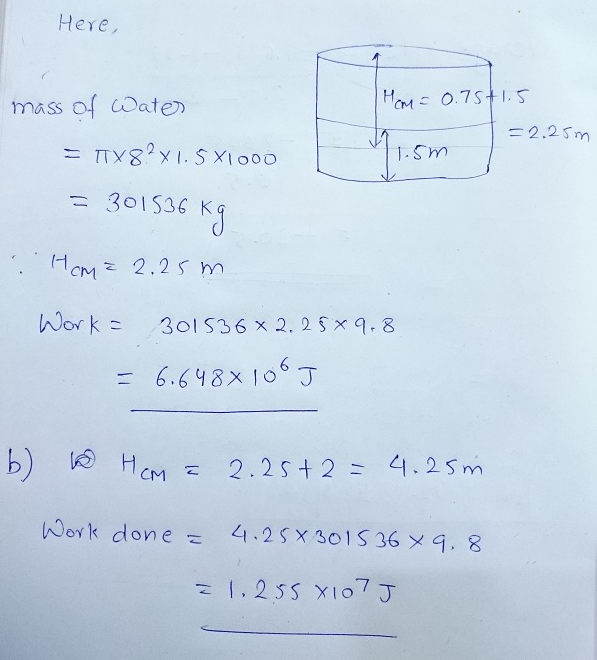 Here,
mass of Water
= π×8²×1.5×1000
= 301536 kg
H_CM = 0.75+1.5
= 2.25m
1.5m
∴ H_CM = 2.25 m
Work = 301536 × 2.25 × 9.8
= 6.648×10⁶ J
b) H_CM = 2.25+2 = 4.25m
Work done = 4.25×301536×9.8
= 1.255 ×10⁷ J